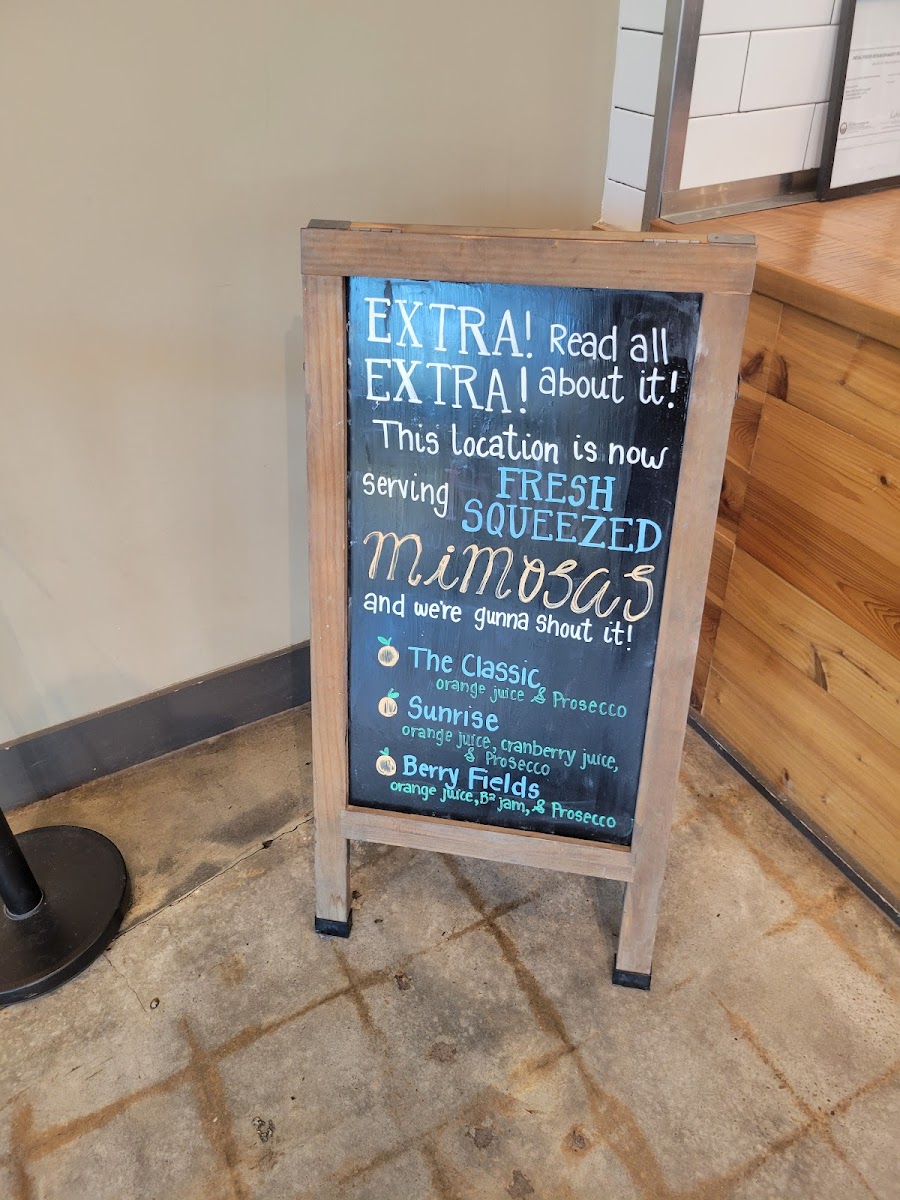 EXTRA! Read all
EXTRA! about it!
This location is now
serving FRESH
SQUEEZED
mimosas
and we're gunna shout it!
The Classic
orange juice & Prosecco
Sunrise
orange juice, cranberry juice,
& Prosecco
Berry Fields
orange juice, B² jam, & Prosecco